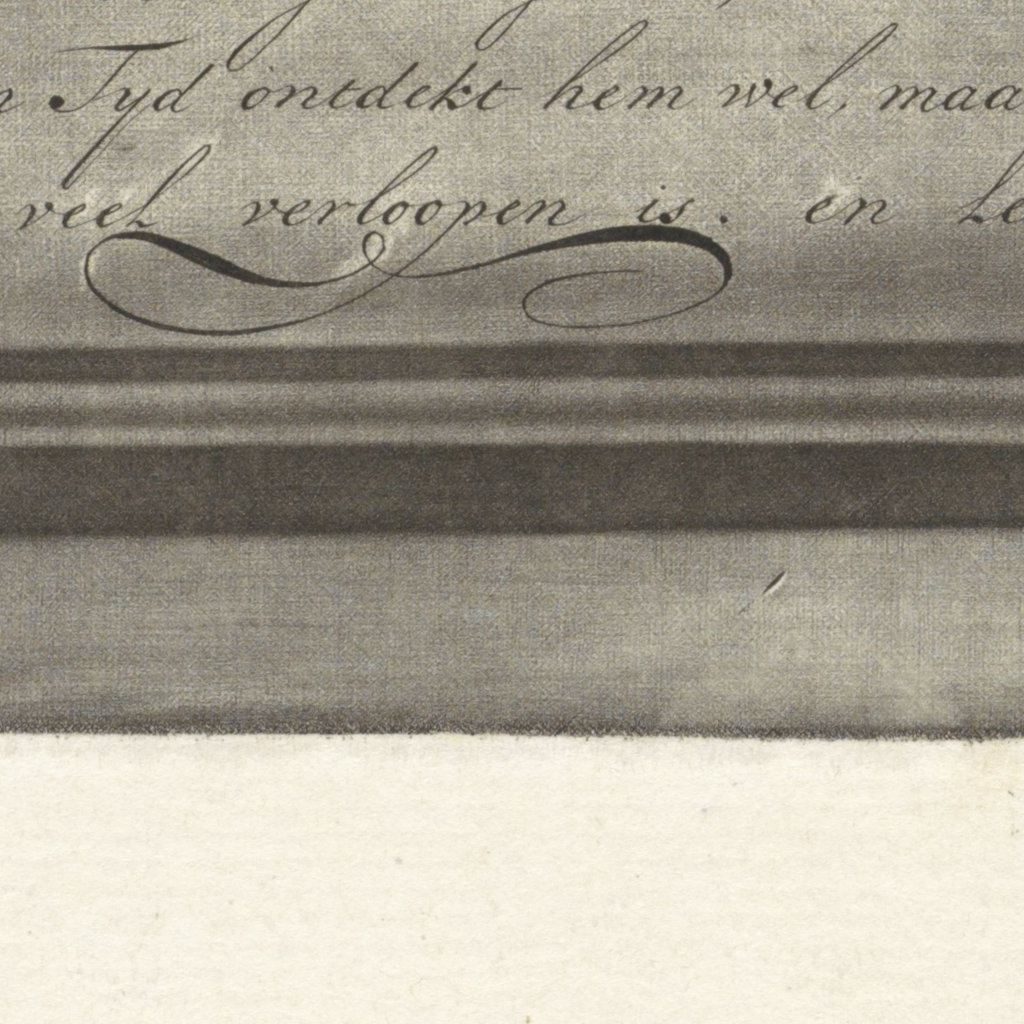 Tyd ontdekt hem wel, maa
veel verloopen is. en